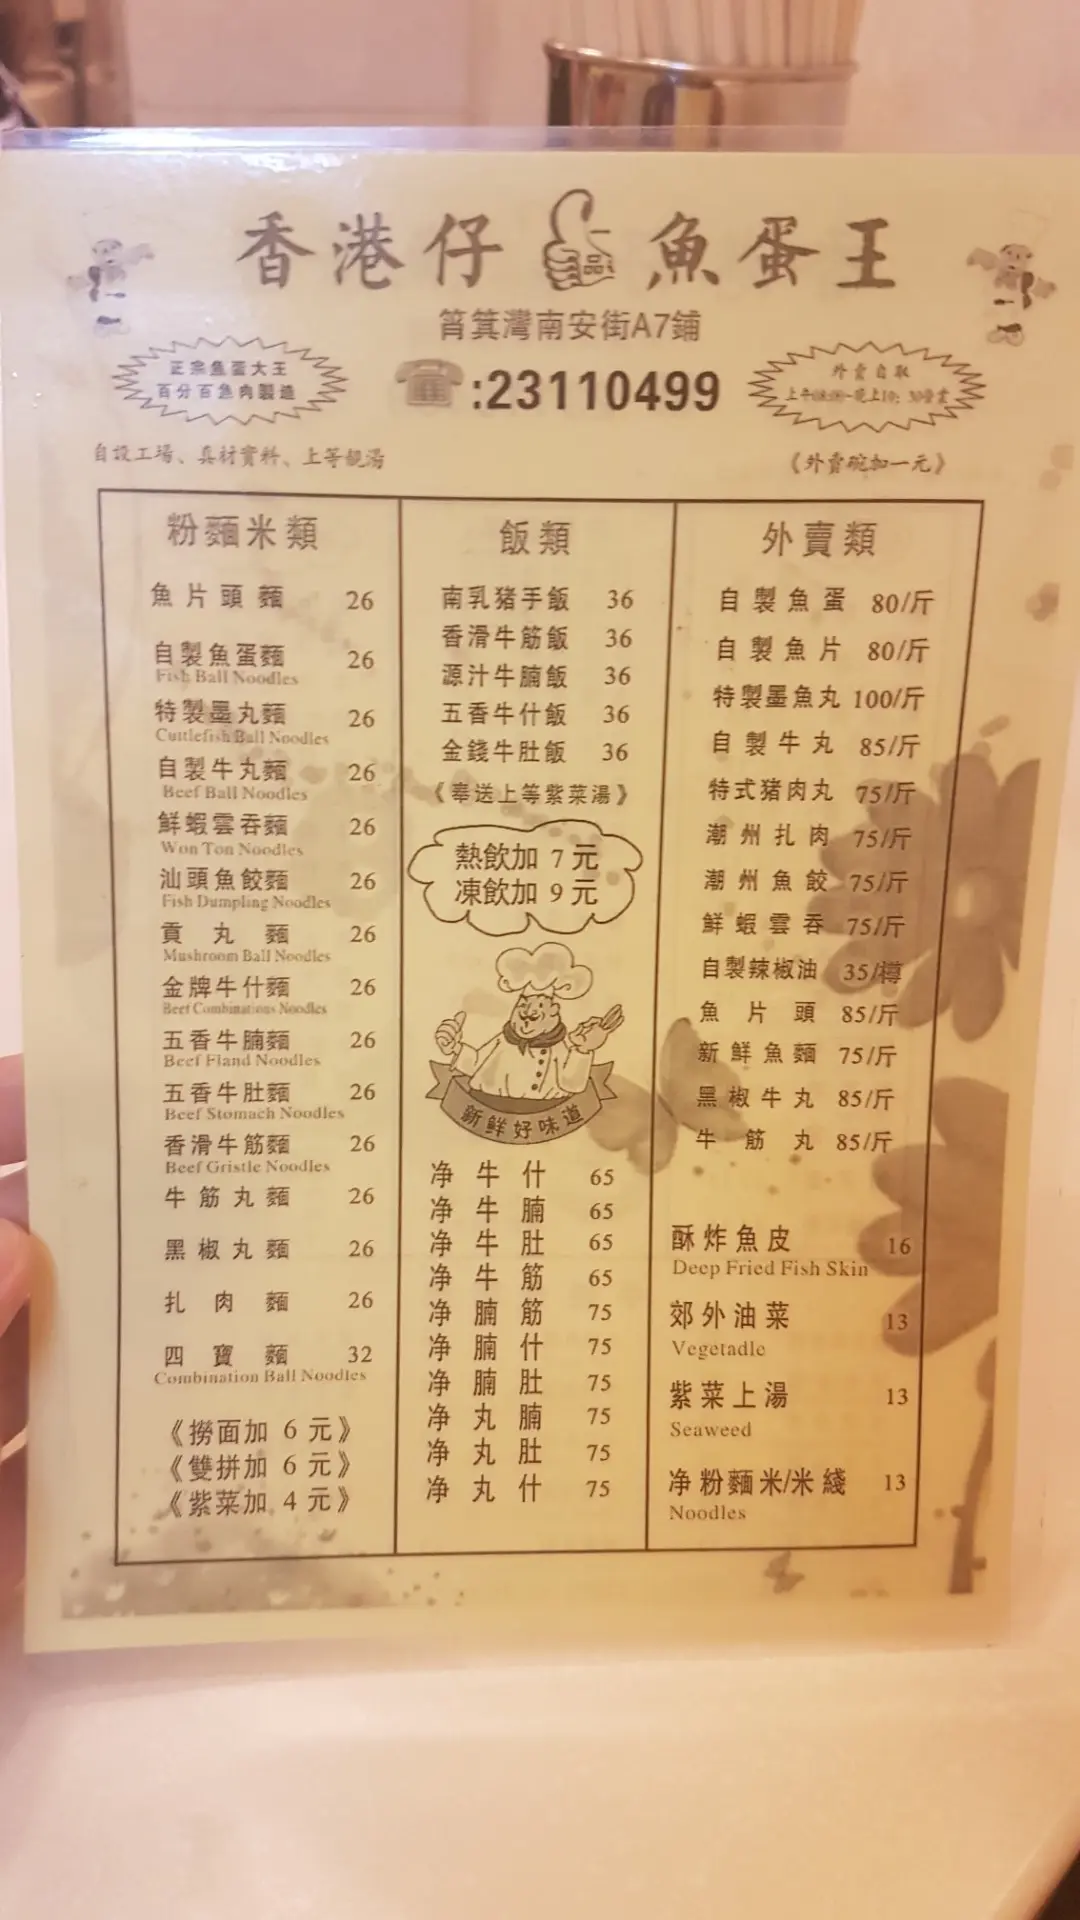 香港仔 魚蛋王
筲箕灣南安街A7鋪
:23110499
正宗魚蛋大王
百分百魚肉製造
外賣自取
自設工場、真材實料、上等靚湯
《外賣碗加一元》
粉麵米類
魚片頭麵 26
自製魚蛋麵 26
Fish Ball Noodles
特製墨丸麵 26
Cuttlefish Ball Noodles
自製牛丸麵 26
Beef Ball Noodles
鮮蝦雲吞麵 26
Won Ton Noodles
汕頭魚餃麵 26
Fish Dumpling Noodles
貢丸麵 26
Mushroom Ball Noodles
金牌牛什麵 26
Beef Combinations Noodles
五香牛腩麵 26
Beef Fland Noodles
五香牛肚麵 26
Beef Stomach Noodles
香滑牛筋麵 26
Beef Gristle Noodles
牛筋丸麵 26
黑椒丸麵 26
扎肉麵 26
四寶麵 32
Combination Ball Noodles
《撈面加 6 元》
《雙拼加 6 元》
《紫菜加 4 元》
飯類
南乳猪手飯 36
香滑牛筋飯 36
源汁牛腩飯 36
五香牛什飯 36
金錢牛肚飯 36
《奉送上等紫菜湯》
熱飲加 7 元
凍飲加 9 元
新鮮好味道
净牛什 65
净牛腩 65
净牛肚 65
净牛筋 65
净腩筋 75
净腩什 75
净腩肚 75
净丸腩 75
净丸肚 75
净丸什 75
外賣類
自製魚蛋 80/斤
自製魚片 80/斤
特製墨魚丸 100/斤
自製牛丸 85/斤
特式猪肉丸 75/斤
潮州扎肉 75/斤
潮州魚餃 75/斤
鮮蝦雲吞 75/斤
自製辣椒油 35/樽
魚片頭 85/斤
新鮮魚麵 75/斤
黑椒牛丸 85/斤
牛筋丸 85/斤
酥炸魚皮 16
Deep Fried Fish Skin
郊外油菜 13
Vegetadle
紫菜上湯 13
Seaweed
净粉麵米/米綫 13
Noodles